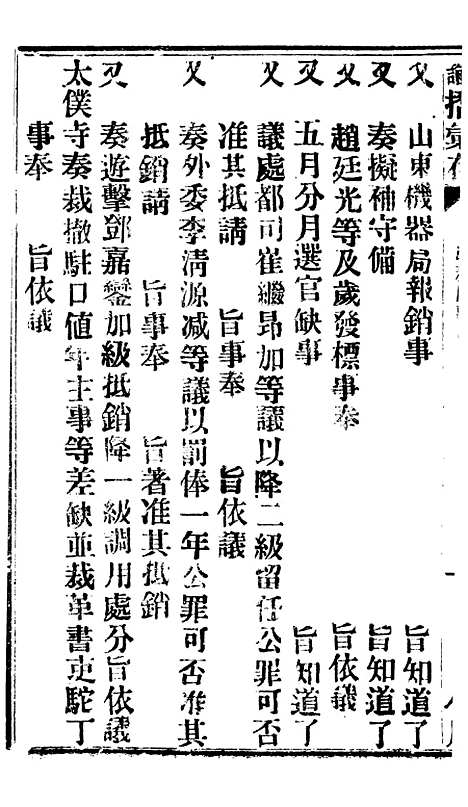 諭摺彙存
又　山東機器局報銷事　旨知道了
又　奏擬補守備　旨知道了
又　趙廷光等及歲發標事奉　旨依議
又　五月分月選官缺事　旨知道了
又　議處都司崔繼昂加等議以降二級留任公罪可否
准其抵請　旨事奉　旨依議
又　奏外委李清源减等議以罰俸一年公罪可否准其
抵銷請　旨事奉　旨著准其抵銷
又　奏遊擊鄧嘉鑾加級抵銷降一級調用處分旨依議
太僕寺奏裁撤駐口值年主事等差缺並裁革書吏駝丁
事奉　旨依議